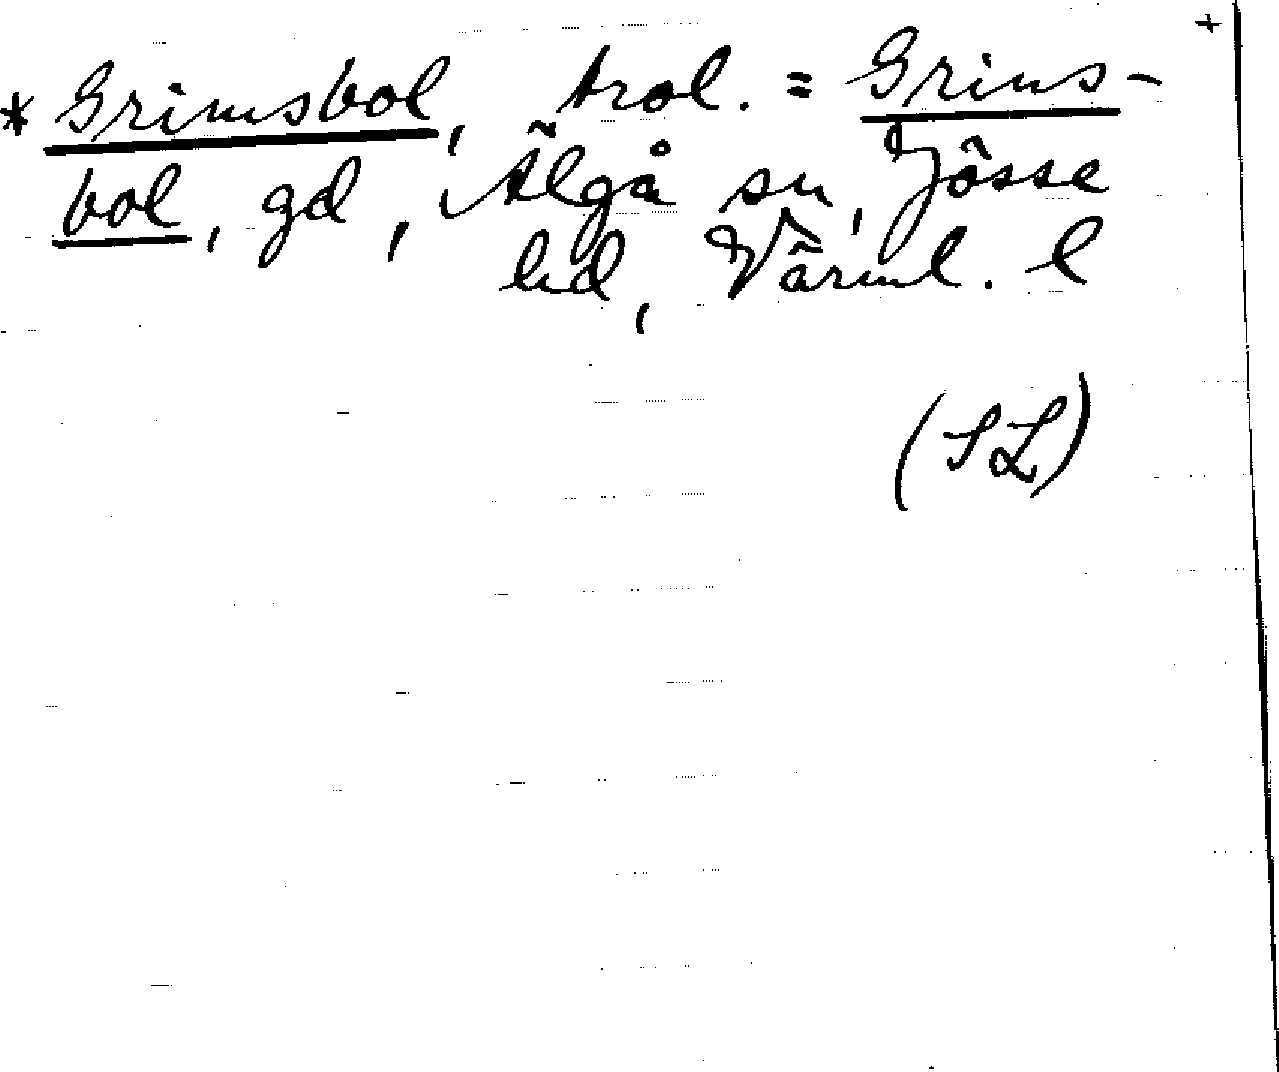 +
* Grimsbol, trol. = Grins-
bol, gd, Älgå sn, Jösse
hd, Värml. l
(SL)